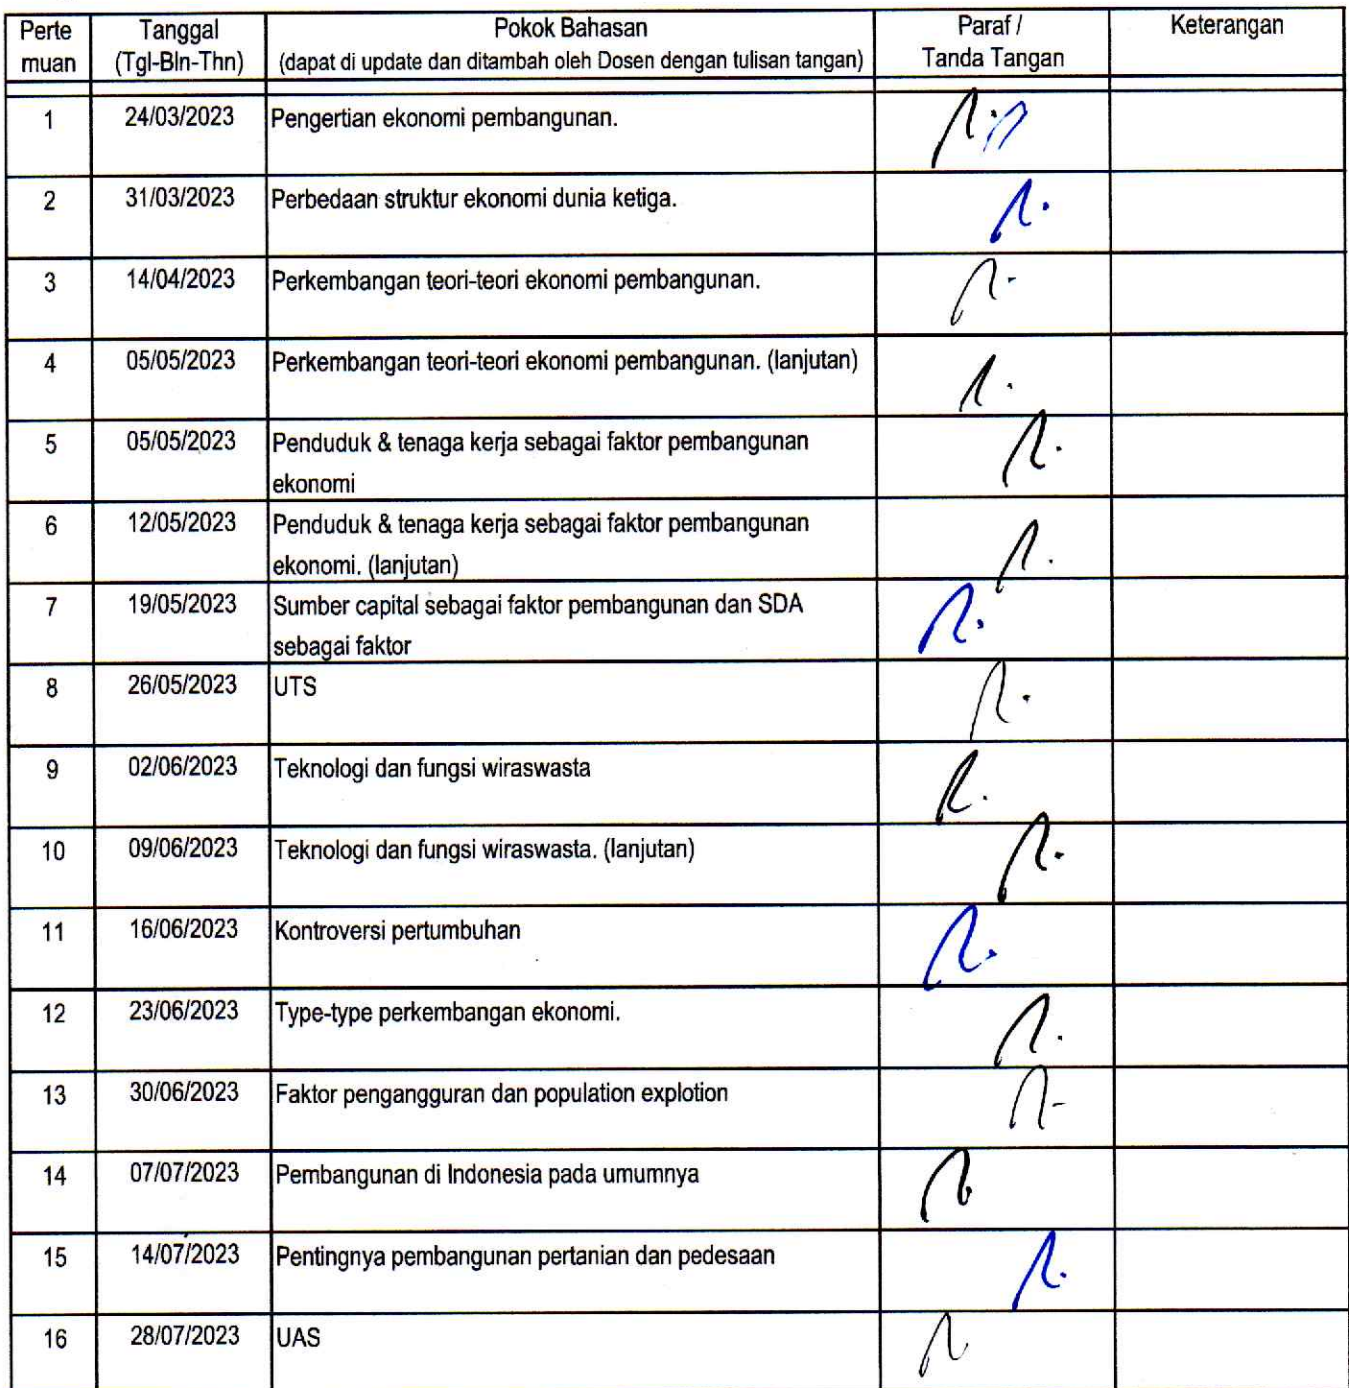 Perte muan Tanggal (Tgl-Bln-Thn) Pokok Bahasan (dapat di update dan ditambah oleh Dosen dengan tulisan tangan) Paraf / Tanda Tangan Keterangan
1 24/03/2023 Pengertian ekonomi pembangunan.
2 31/03/2023 Perbedaan struktur ekonomi dunia ketiga.
3 14/04/2023 Perkembangan teori-teori ekonomi pembangunan.
4 05/05/2023 Perkembangan teori-teori ekonomi pembangunan. (lanjutan)
5 05/05/2023 Penduduk & tenaga kerja sebagai faktor pembangunan
ekonomi
6 12/05/2023 Penduduk & tenaga kerja sebagai faktor pembangunan
ekonomi. (lanjutan)
7 19/05/2023 Sumber capital sebagai faktor pembangunan dan SDA
sebagai faktor
8 26/05/2023 UTS
9 02/06/2023 Teknologi dan fungsi wiraswasta
10 09/06/2023 Teknologi dan fungsi wiraswasta. (lanjutan)
11 16/06/2023 Kontroversi pertumbuhan
12 23/06/2023 Type-type perkembangan ekonomi.
13 30/06/2023 Faktor pengangguran dan population explotion
14 07/07/2023 Pembangunan di Indonesia pada umumnya
15 14/07/2023 Pentingnya pembangunan pertanian dan pedesaan
16 28/07/2023 UAS